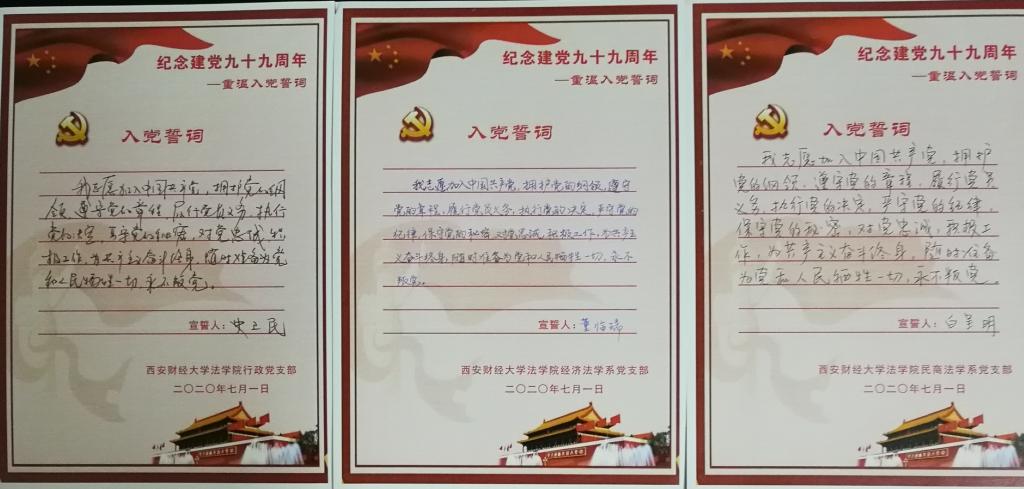 纪念建党九十九周年
—重温入党誓词
入党誓词
我志愿加入中国共产党，拥护党的纲
领，遵守党的章程，履行党员义务，执行
党的决定，严守党的，对党忠诚，积
极工作，为共产主义奋斗终身，随时准备为党
和人民牺牲一切，永不叛党。
宣誓人：史卫民
西安财经大学法学院行政党支部
二〇二〇年七月一日
纪念建党九十九周年
—重温入党誓词
入党誓词
我志愿加入中国共产党，拥护党的纲领，遵守
党的章程，履行党员义务，执行党的决定，严守党的
纪律，保守党的秘密，对党忠诚，积极工作，为共产主
义奋斗终身，随时准备为党和人民牺牲一切，永不
叛党。
宣誓人：董
西安财经大学法学院经济法学系党支部
二〇二〇年七月一日
纪念建党九十九周年
—重温入党誓词
入党誓词
我志愿加入中国共产党，拥护
党的纲领，遵守党的章程，履行党员
义务，执行党的决定，严守党的纪律，
保守党的秘密，对党忠诚，积极工
作，为共产主义奋斗终身，随时准备
为党和人民牺牲一切，永不叛党。
宣誓人：白呈明
西安财经大学法学院民商法学系党支部
二〇二〇年七月一日